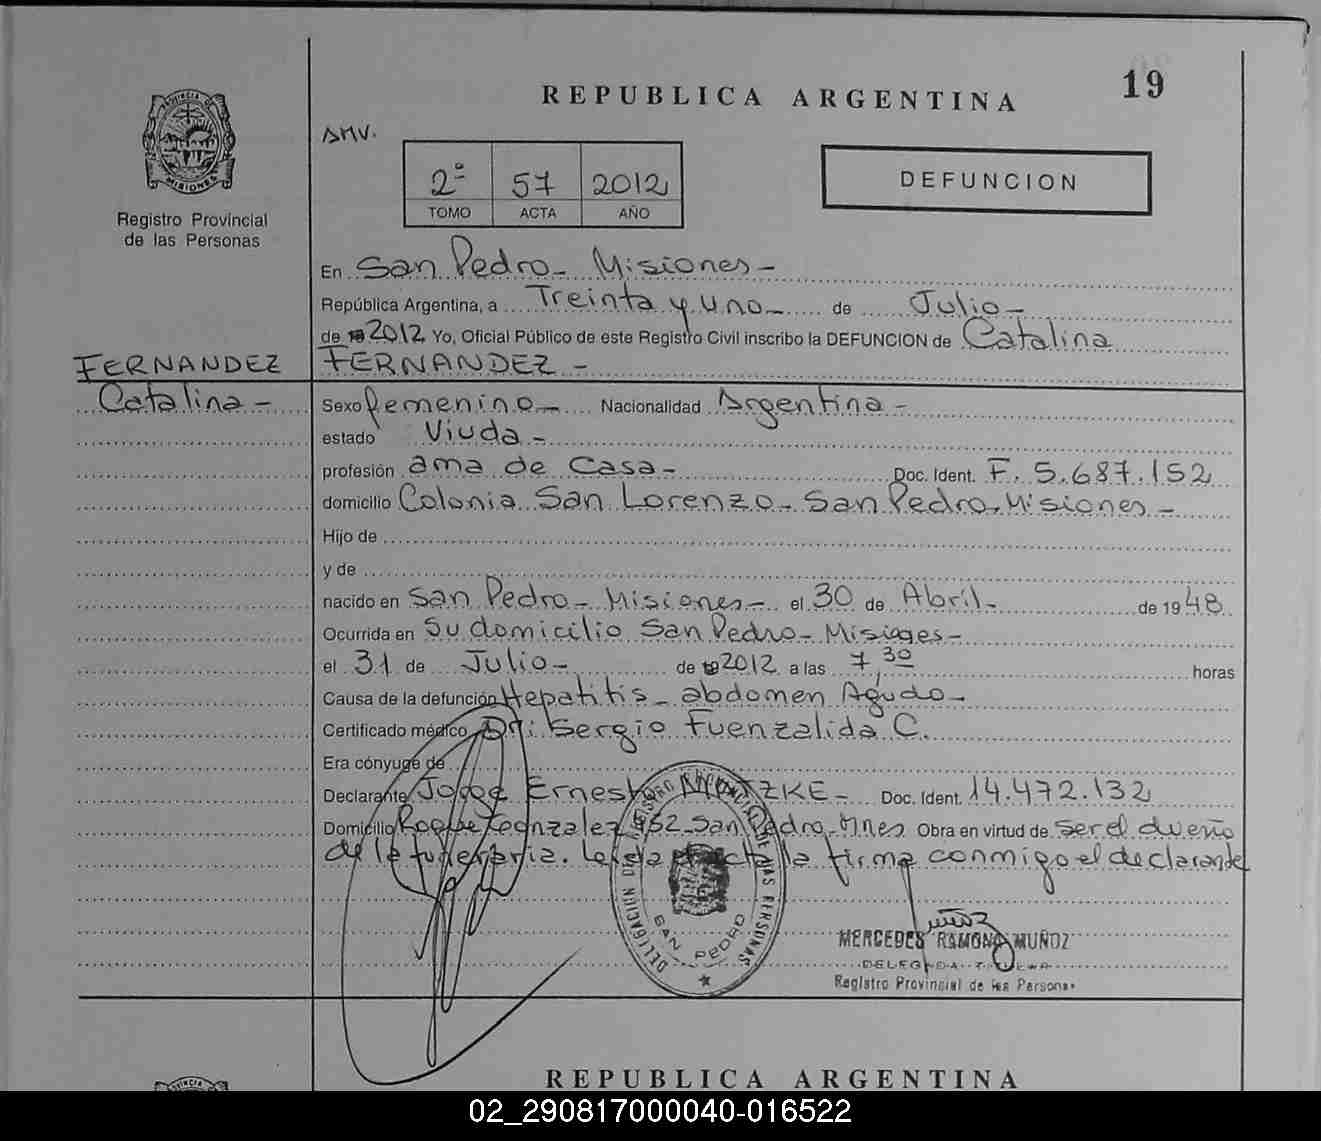 19
REPUBLICA ARGENTINA
AMV.
PROVINCIA DE
MISIONES
2º 57 2012
TOMO ACTA AÑO
DEFUNCION
Registro Provincial
de las Personas
En San Pedro - Misiones -
República Argentina, a Treinta y uno - de Julio -
de 2012 Yo, Oficial Público de este Registro Civil inscribo la DEFUNCION de Catalina
FERNANDEZ FERNANDEZ -
Catalina - Sexo femenino - Nacionalidad Argentina -
estado Viuda -
profesión ama de casa - Doc. Ident. F. 5.687.152
domicilio Colonia San Lorenzo - San Pedro - Misiones -
Hijo de
y de
nacido en San Pedro - Misiones - el 30 de Abril - de 1948
Ocurrida en Su domicilio San Pedro - Misiones -
el 31 de Julio - de 2012 a las 7,30 horas
Causa de la defunción Hepatitis - abdomen Agudo -
Certificado médico Dr: Sergio Fuenzalida C.
Era cónyuge de
Declarante Jorge Ernesto - Doc. Ident. 14.472.132
Domicilio Roque Gonzalez 452 - San Pedro - Mnes Obra en virtud de ser el dueño
de la funeraria. Leida el acta la firma conmigo el declarante
DELEGACION DE REGISTRO PROVINCIAL DE LAS PERSONAS
SAN PEDRO
Muñoz
MERCEDES RAMONA MUÑOZ
DELEGADA TITULAR
Registro Provincial de las Personas
REPUBLICA ARGENTINA
02_290817000040-016522